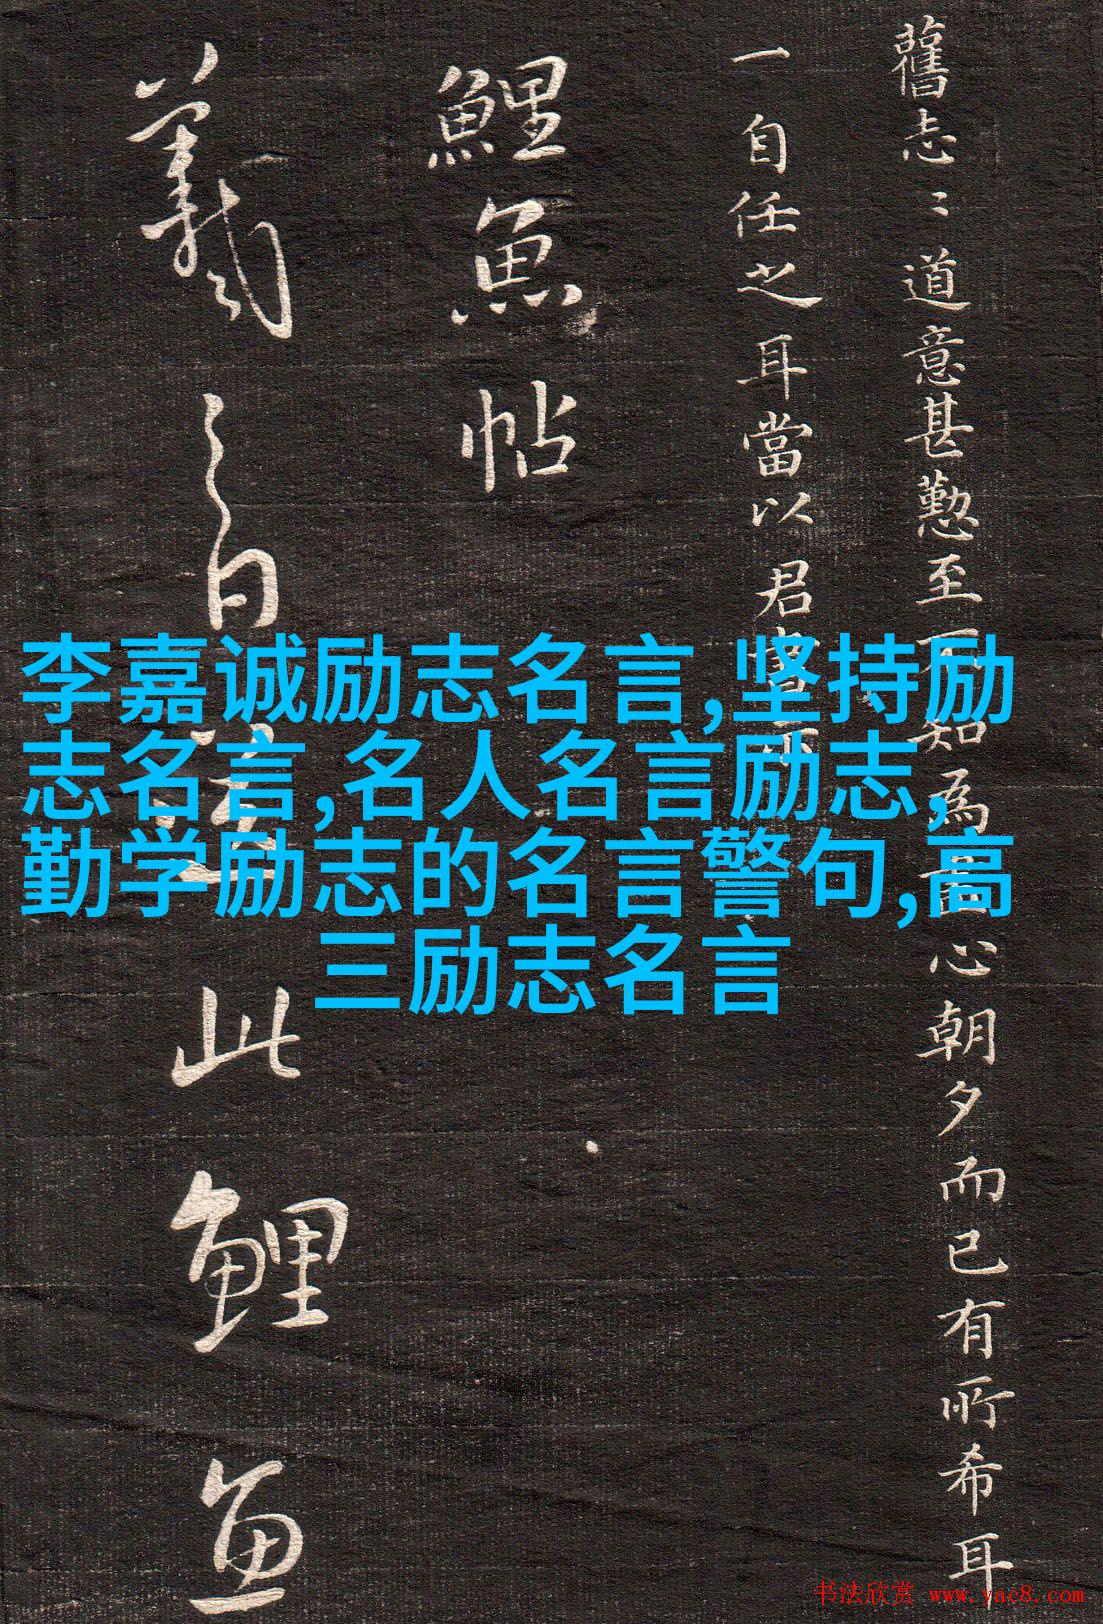 舊志〻道意甚懃至不知為
心朝夕而已有所希耳
一自任之耳當以君書示
鯉魚帖
羲之白
此鯉魚
李嘉诚励志名言,坚持励
志名言,名人名言励志,
勤学励志的名言警句,高
三励志名言
书法欣赏 www.yac8.com